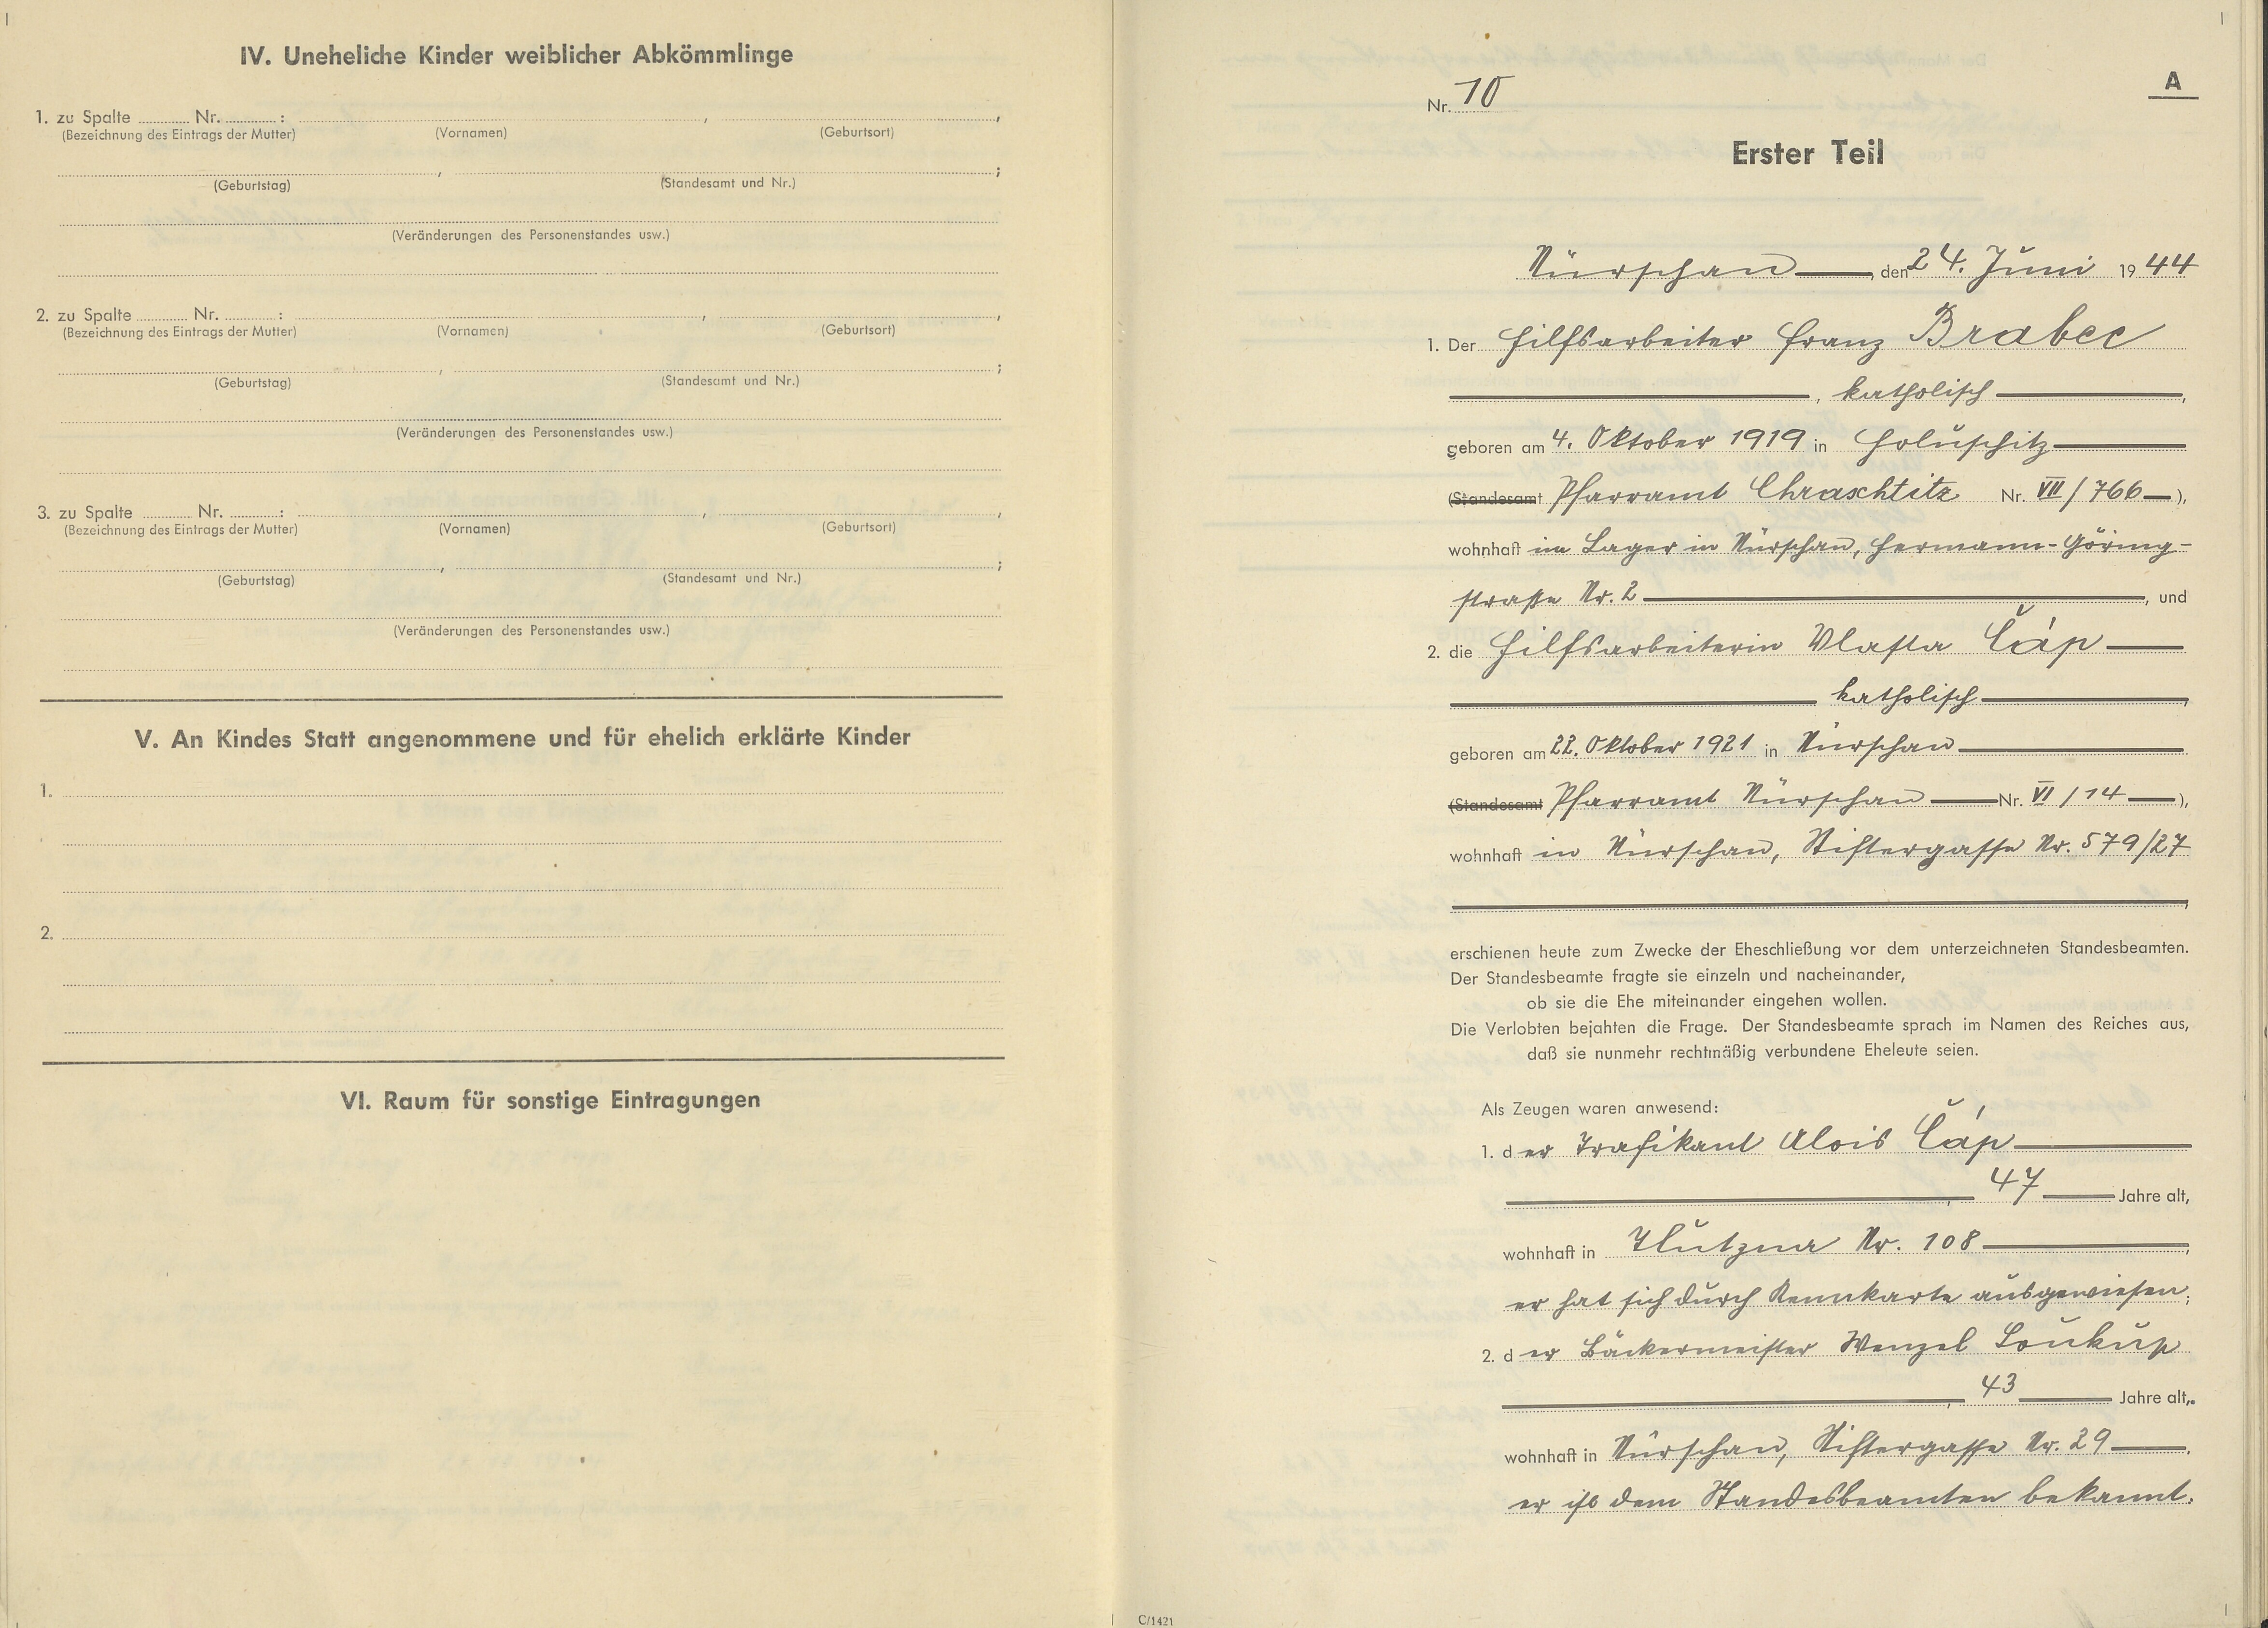 IV. Uneheliche Kinder weiblicher Abkömmlinge
1. zu Spalte ........ Nr. ........ : ........ , ........ ,
(Bezeichnung des Eintrags der Mutter) (Vornamen) (Geburtsort)
........ , ........ ;
(Geburtstag) (Standesamt und Nr.)
(Veränderungen des Personenstandes usw.)
2. zu Spalte ........ Nr. ........ : ........ , ........ ,
(Bezeichnung des Eintrags der Mutter) (Vornamen) (Geburtsort)
........ , ........ ;
(Geburtstag) (Standesamt und Nr.)
(Veränderungen des Personenstandes usw.)
3. zu Spalte ........ Nr. ........ : ........ , ........ ,
(Bezeichnung des Eintrags der Mutter) (Vornamen) (Geburtsort)
........ , ........ ;
(Geburtstag) (Standesamt und Nr.)
(Veränderungen des Personenstandes usw.)
V. An Kindes Statt angenommene und für ehelich erklärte Kinder
1.
2.
VI. Raum für sonstige Eintragungen
A
Nr. 10
Erster Teil
Nürschan, den 24. Juni 1944
1. Der Hilfsarbeiter Franz Brabec
, katholisch ,
geboren am 4. Oktober 1919 in Holuschitz
(Standesamt Pfarramt Chraschtitz Nr. VII/766 ),
wohnhaft im Lager in Nürschan, Hermann-Göring-
straße Nr. 2 , und
2. die Hilfsarbeiterin Vlasta Čáp
katholisch ,
geboren am 22. Oktober 1921 in Nürschan
(Standesamt Pfarramt Nürschan Nr. VI/14 ),
wohnhaft in Nürschan, Stiftergasse Nr. 579/27
,
erschienen heute zum Zwecke der Eheschließung vor dem unterzeichneten Standesbeamten.
Der Standesbeamte fragte sie einzeln und nacheinander,
ob sie die Ehe miteinander eingehen wollen.
Die Verlobten bejahten die Frage. Der Standesbeamte sprach im Namen des Reiches aus,
daß sie nunmehr rechtmäßig verbundene Eheleute seien.
Als Zeugen waren anwesend:
1. der Trafikant Alois Čáp
, 47 Jahre alt,
wohnhaft in Hlutzna Nr. 108 ,
er hat sich durch Kennkarte ausgewiesen;
2. der Bäckermeister Wenzel Soukup
, 43 Jahre alt,
wohnhaft in Nürschan, Stiftergasse Nr. 29 .
er ist dem Standesbeamten bekannt.
C/1421